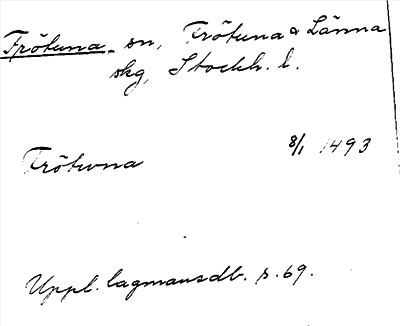 Frötuna sn, Frötuna o Länna
skg, Stockh. l.
Frötwna 8/1 1493
Uppl. lagmansdb. s. 69.